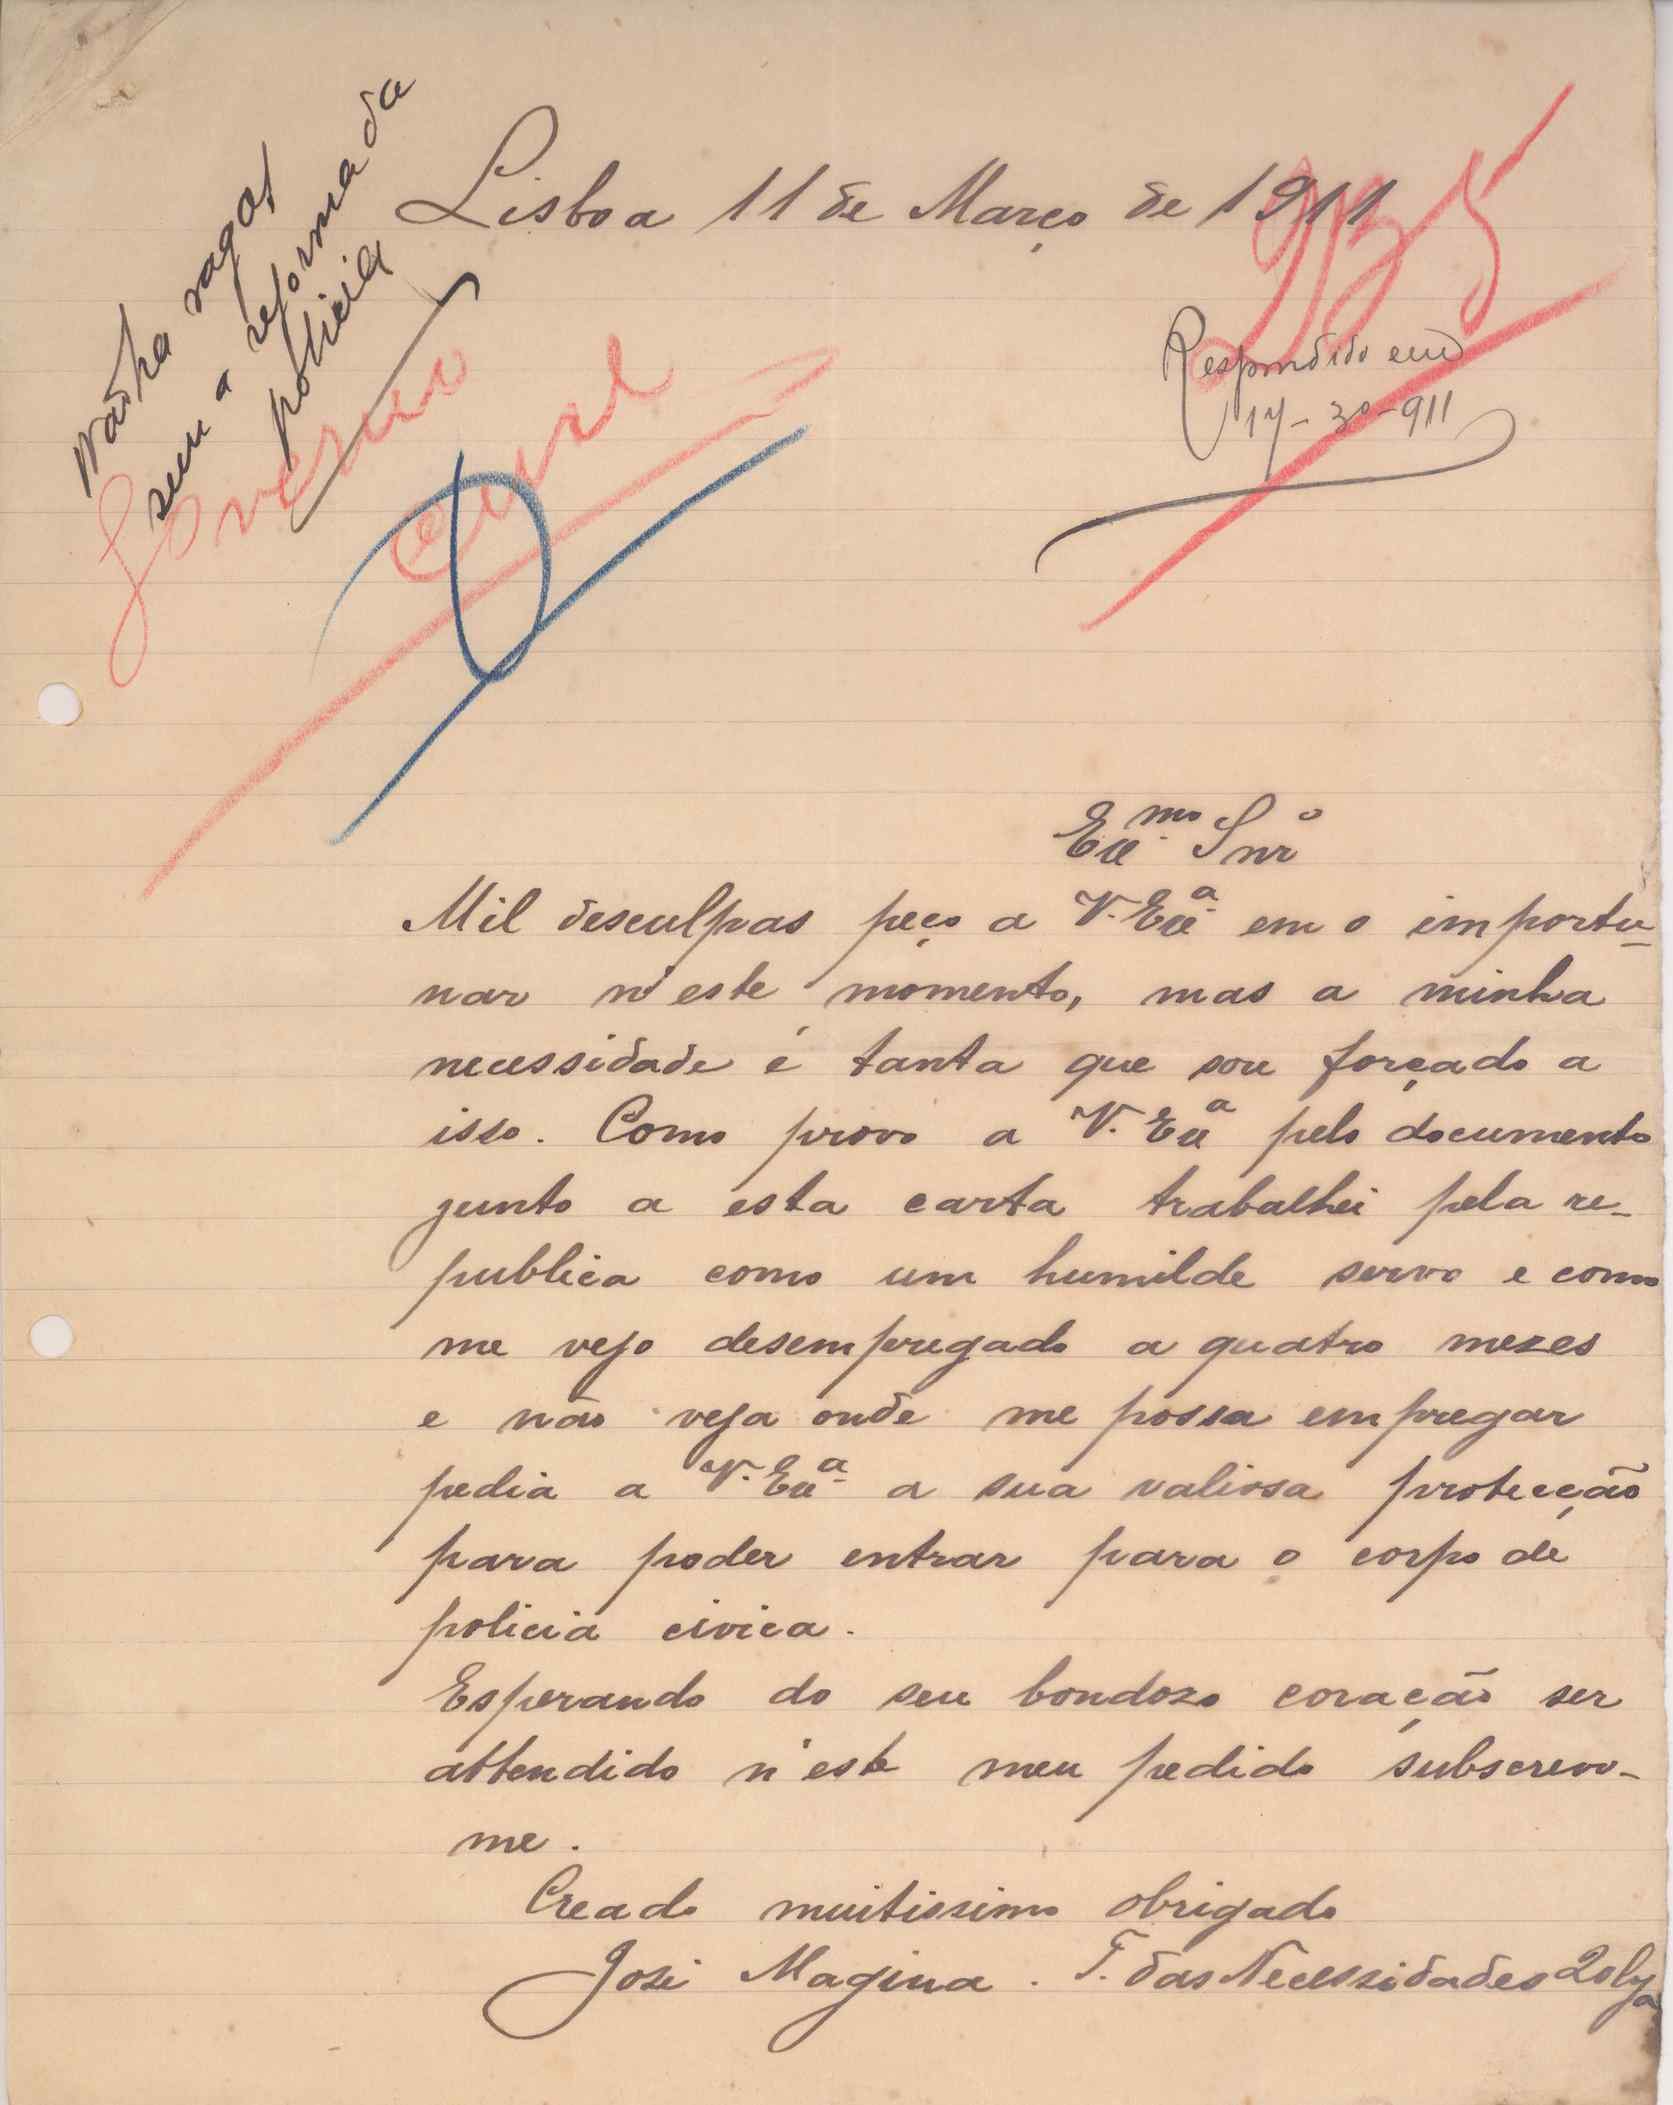 Não ha vagas
sem a reforma da
policia
Governo
Civil
Lisboa 11 de Março de 1911
935
Respondido em
17-3º-911
Exmo Snro
Mil desculpas peço a V. Exa em o importu-
nar n'este momento, mas a minha
necessidade é tanta que sou forçado a
isso. Como provo a V. Exa pelo documento
junto a esta carta trabalhei pela re-
publica como um humilde servo e como
me vejo desempregado a quatro mezes
e não veja onde me possa empregar
pedia a V. Exa a sua valiosa protecção
para poder entrar para o corpo de
policia civica.
Esperando do seu bondozo coração ser
attendido n'este meu pedido subscrevo-
me.
Creado muitissimo obrigado
José Magina. T. das Necessidades 20